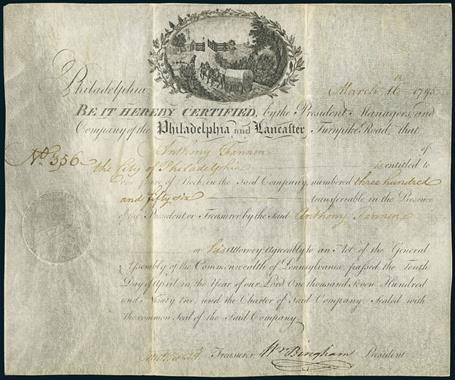 Philadelphia March 16th 1795
BE IT HEREBY CERTIFIED, by the President Managers and
Company of the Philadelphia and Lancaster Turnpike Road, that
Anthony of
No. 356 the City of Philadelphia is entitled to
One Share of Stock, in the said Company, numbered three hundred
and fifty six transferable in the Presence
of the President or Treasurer, by the said Anthony
or his Attorney Agreeably to an Act of the General
Assembly of the Commonwealth of Pennsylvania, passed the Tenth
Day of April in the Year of our Lord One thousand Seven Hundred
and Ninety two, and the Charter of said Company Sealed with
the common Seal of the said Company.
Treasurer Wm Bingham President